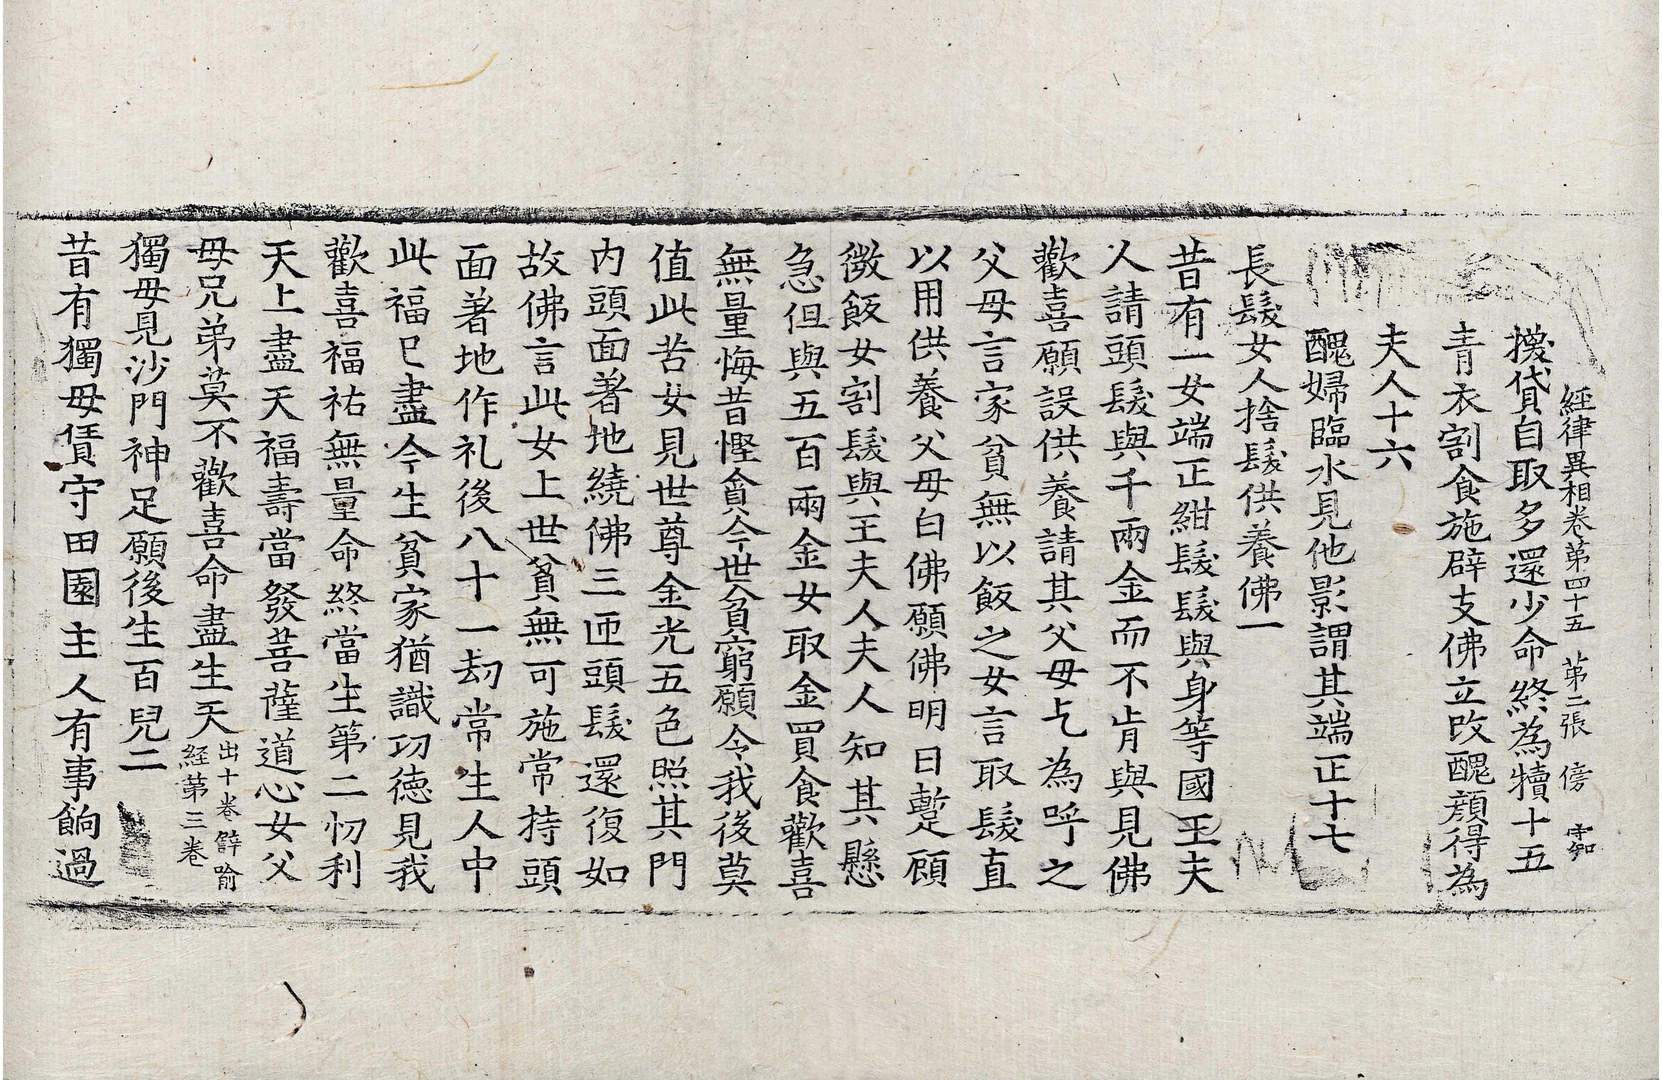 經律異相卷第四十五 第二張 傍
擽貸自取多還少命終為犢十五
青衣割食施辟支佛立改醜顔得為
夫人十六
醜婦臨水見他影謂其端正十七
長髮女人捨髮供養佛一
昔有一女端正紺髮髮與身等國王夫
人請頭髮與千兩金而不肯與見佛
歡喜願設供養請其父母乞為呼之
父母言家貧無以飯之女言取髮直
以用供養父母白佛願佛明日蹔顧
微飯女割髮與王夫人夫人知其懸
急但與五百兩金女取金買食歡喜
無量悔昔慳貪今世貧窮願令我後莫
值此苦女見世尊金光五色照其門
内頭面著地繞佛三匝頭髮還復如
故佛言此女上世貧無可施常持頭
面著地作礼後八十一劫常生人中
此福已盡今生貧家猶識功德見我
歡喜福祐無量命終當生第二忉利
天上盡天福壽當發菩薩道心女父
母兄弟莫不歡喜命盡生天出十卷譬喻
經第三卷
獨母見沙門神足願後生百兒二
昔有獨母賃守田園主人有事餉過